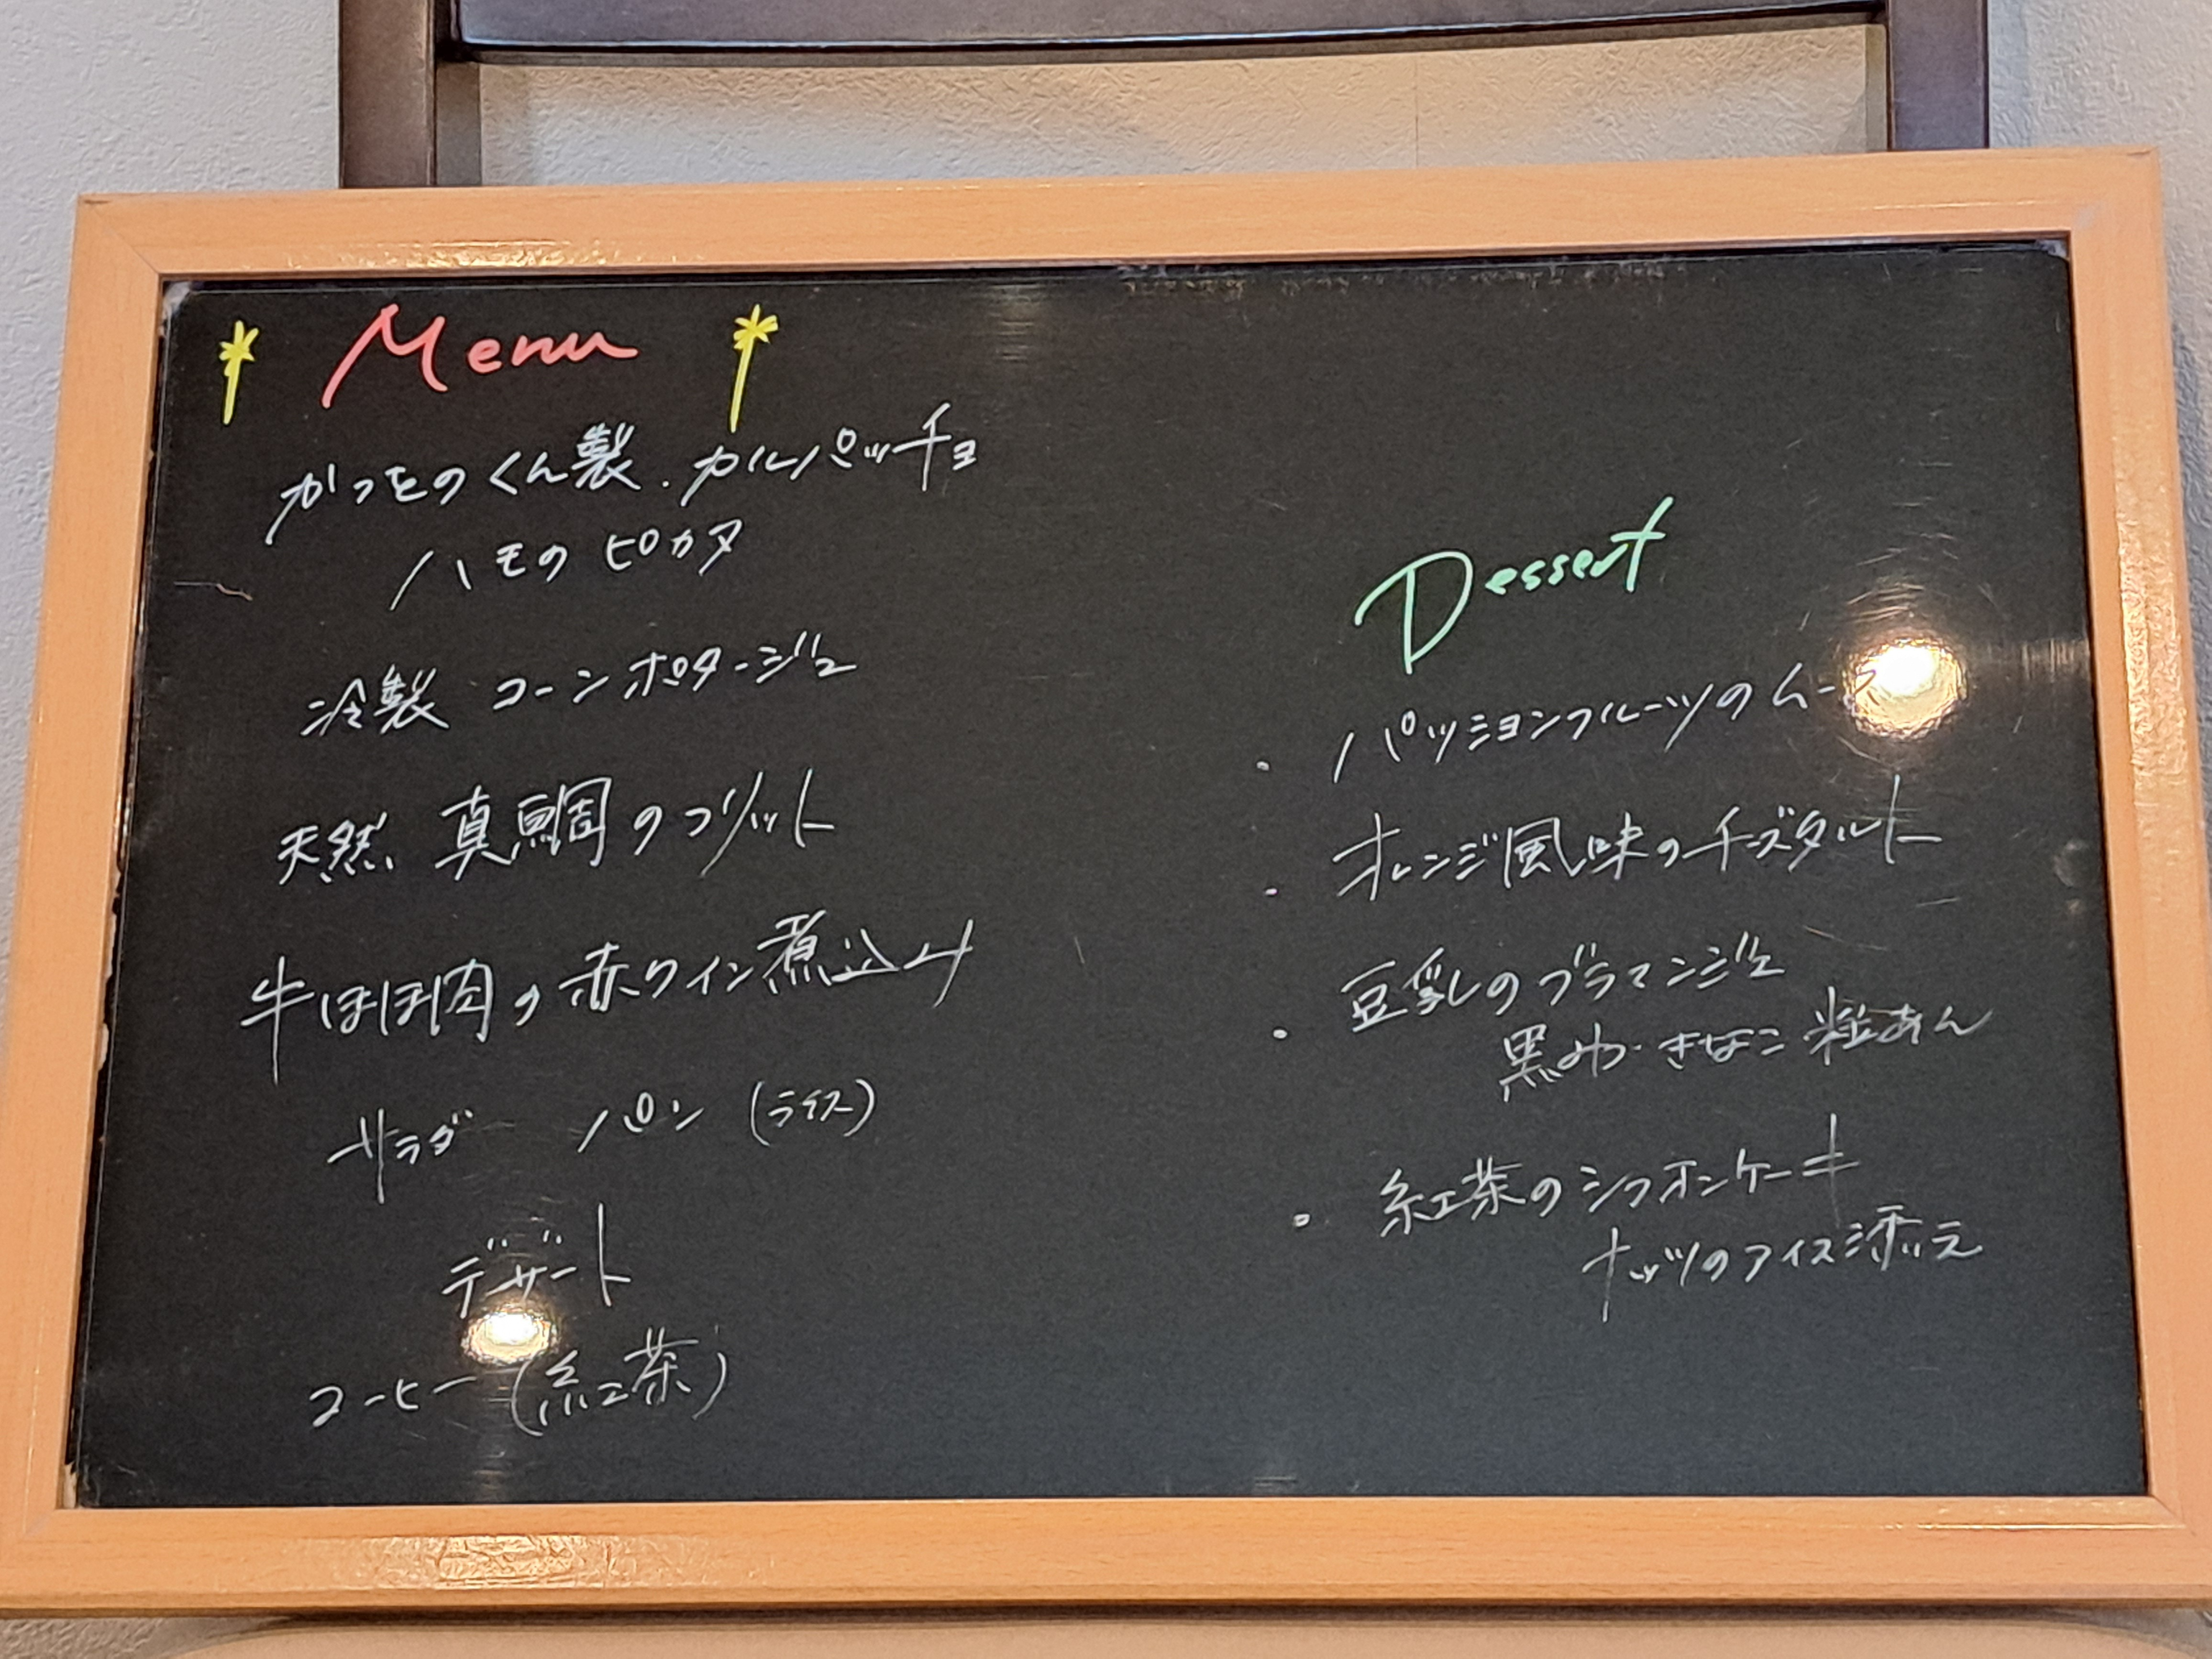 Menu
かつをのくん製.カルパッチョ
ハモのピカタ
冷製 コーンポタージュ
天然 真鯛のフリット
牛ほほ肉の赤ワイン煮込み
サラダ パン (ライス)
デザート
コーヒー (紅茶)
Dessert
・パッションフルーツのムース
・オレンジ風味のチーズタルト
・豆乳のブラマンジェ
黒みつ・きなこ 粒あん
・紅茶のシフォンケーキ
ナッツのアイス添え